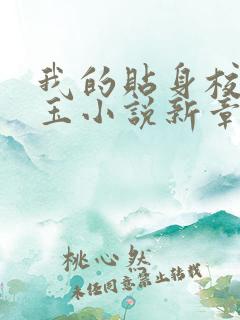 我的貼身校
玉小说新章
桃心然
未经同意禁止转载